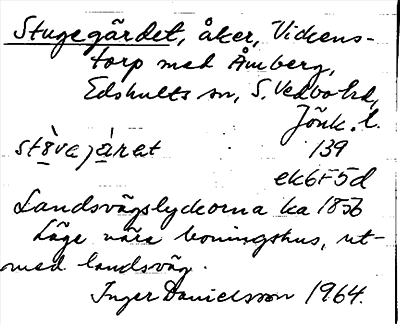 Stugegärdet, åker, Videns-
torp med Åmberg,
Edshults sn, S. Vedbo hd,
Jönk. l.
stòvajàrat 139
ek6F5d
Landsvägslyckorna ka 1856
Läge nära boningshus, ut-
med landsväg.
Inger Danielsson 1964.